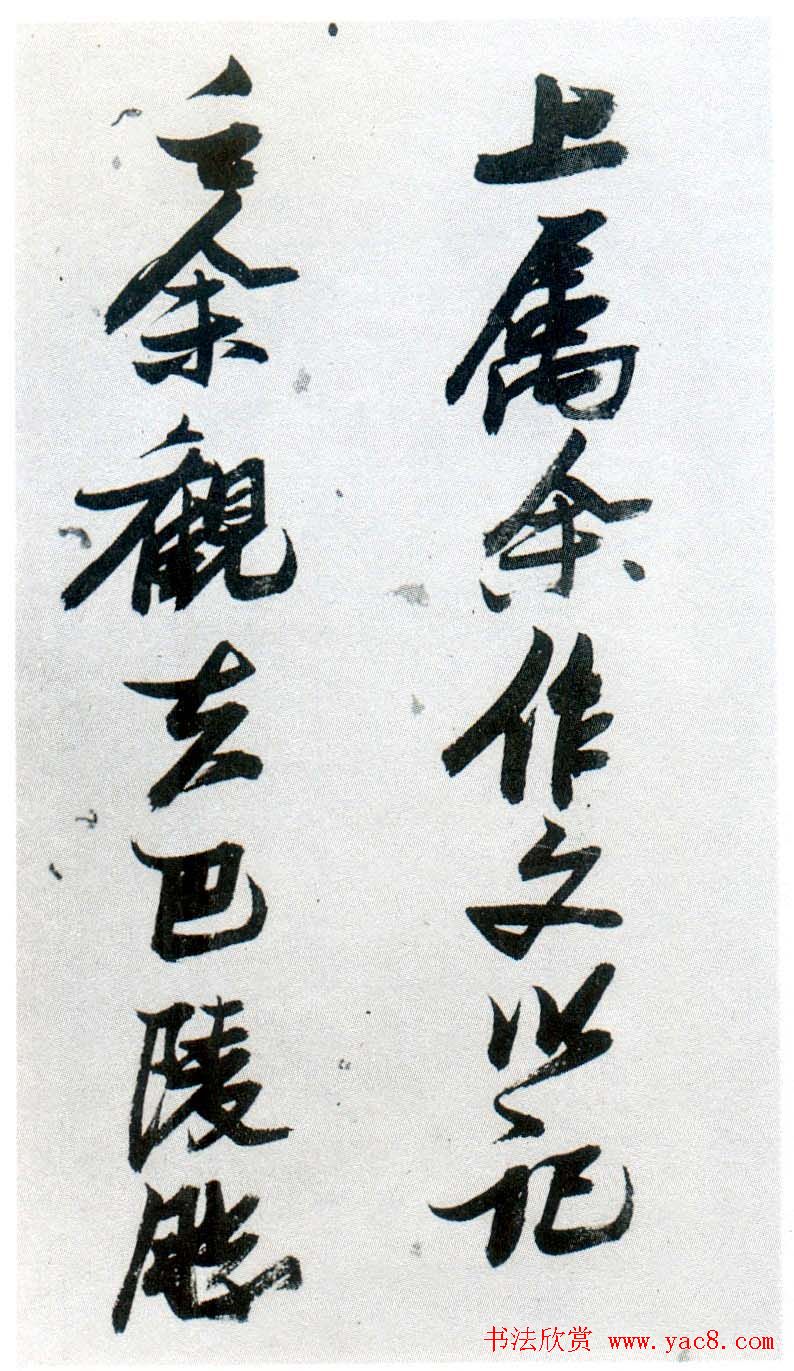 上属余作文以記
之余觀夫巴陵勝
书法欣赏 www.yac8.com